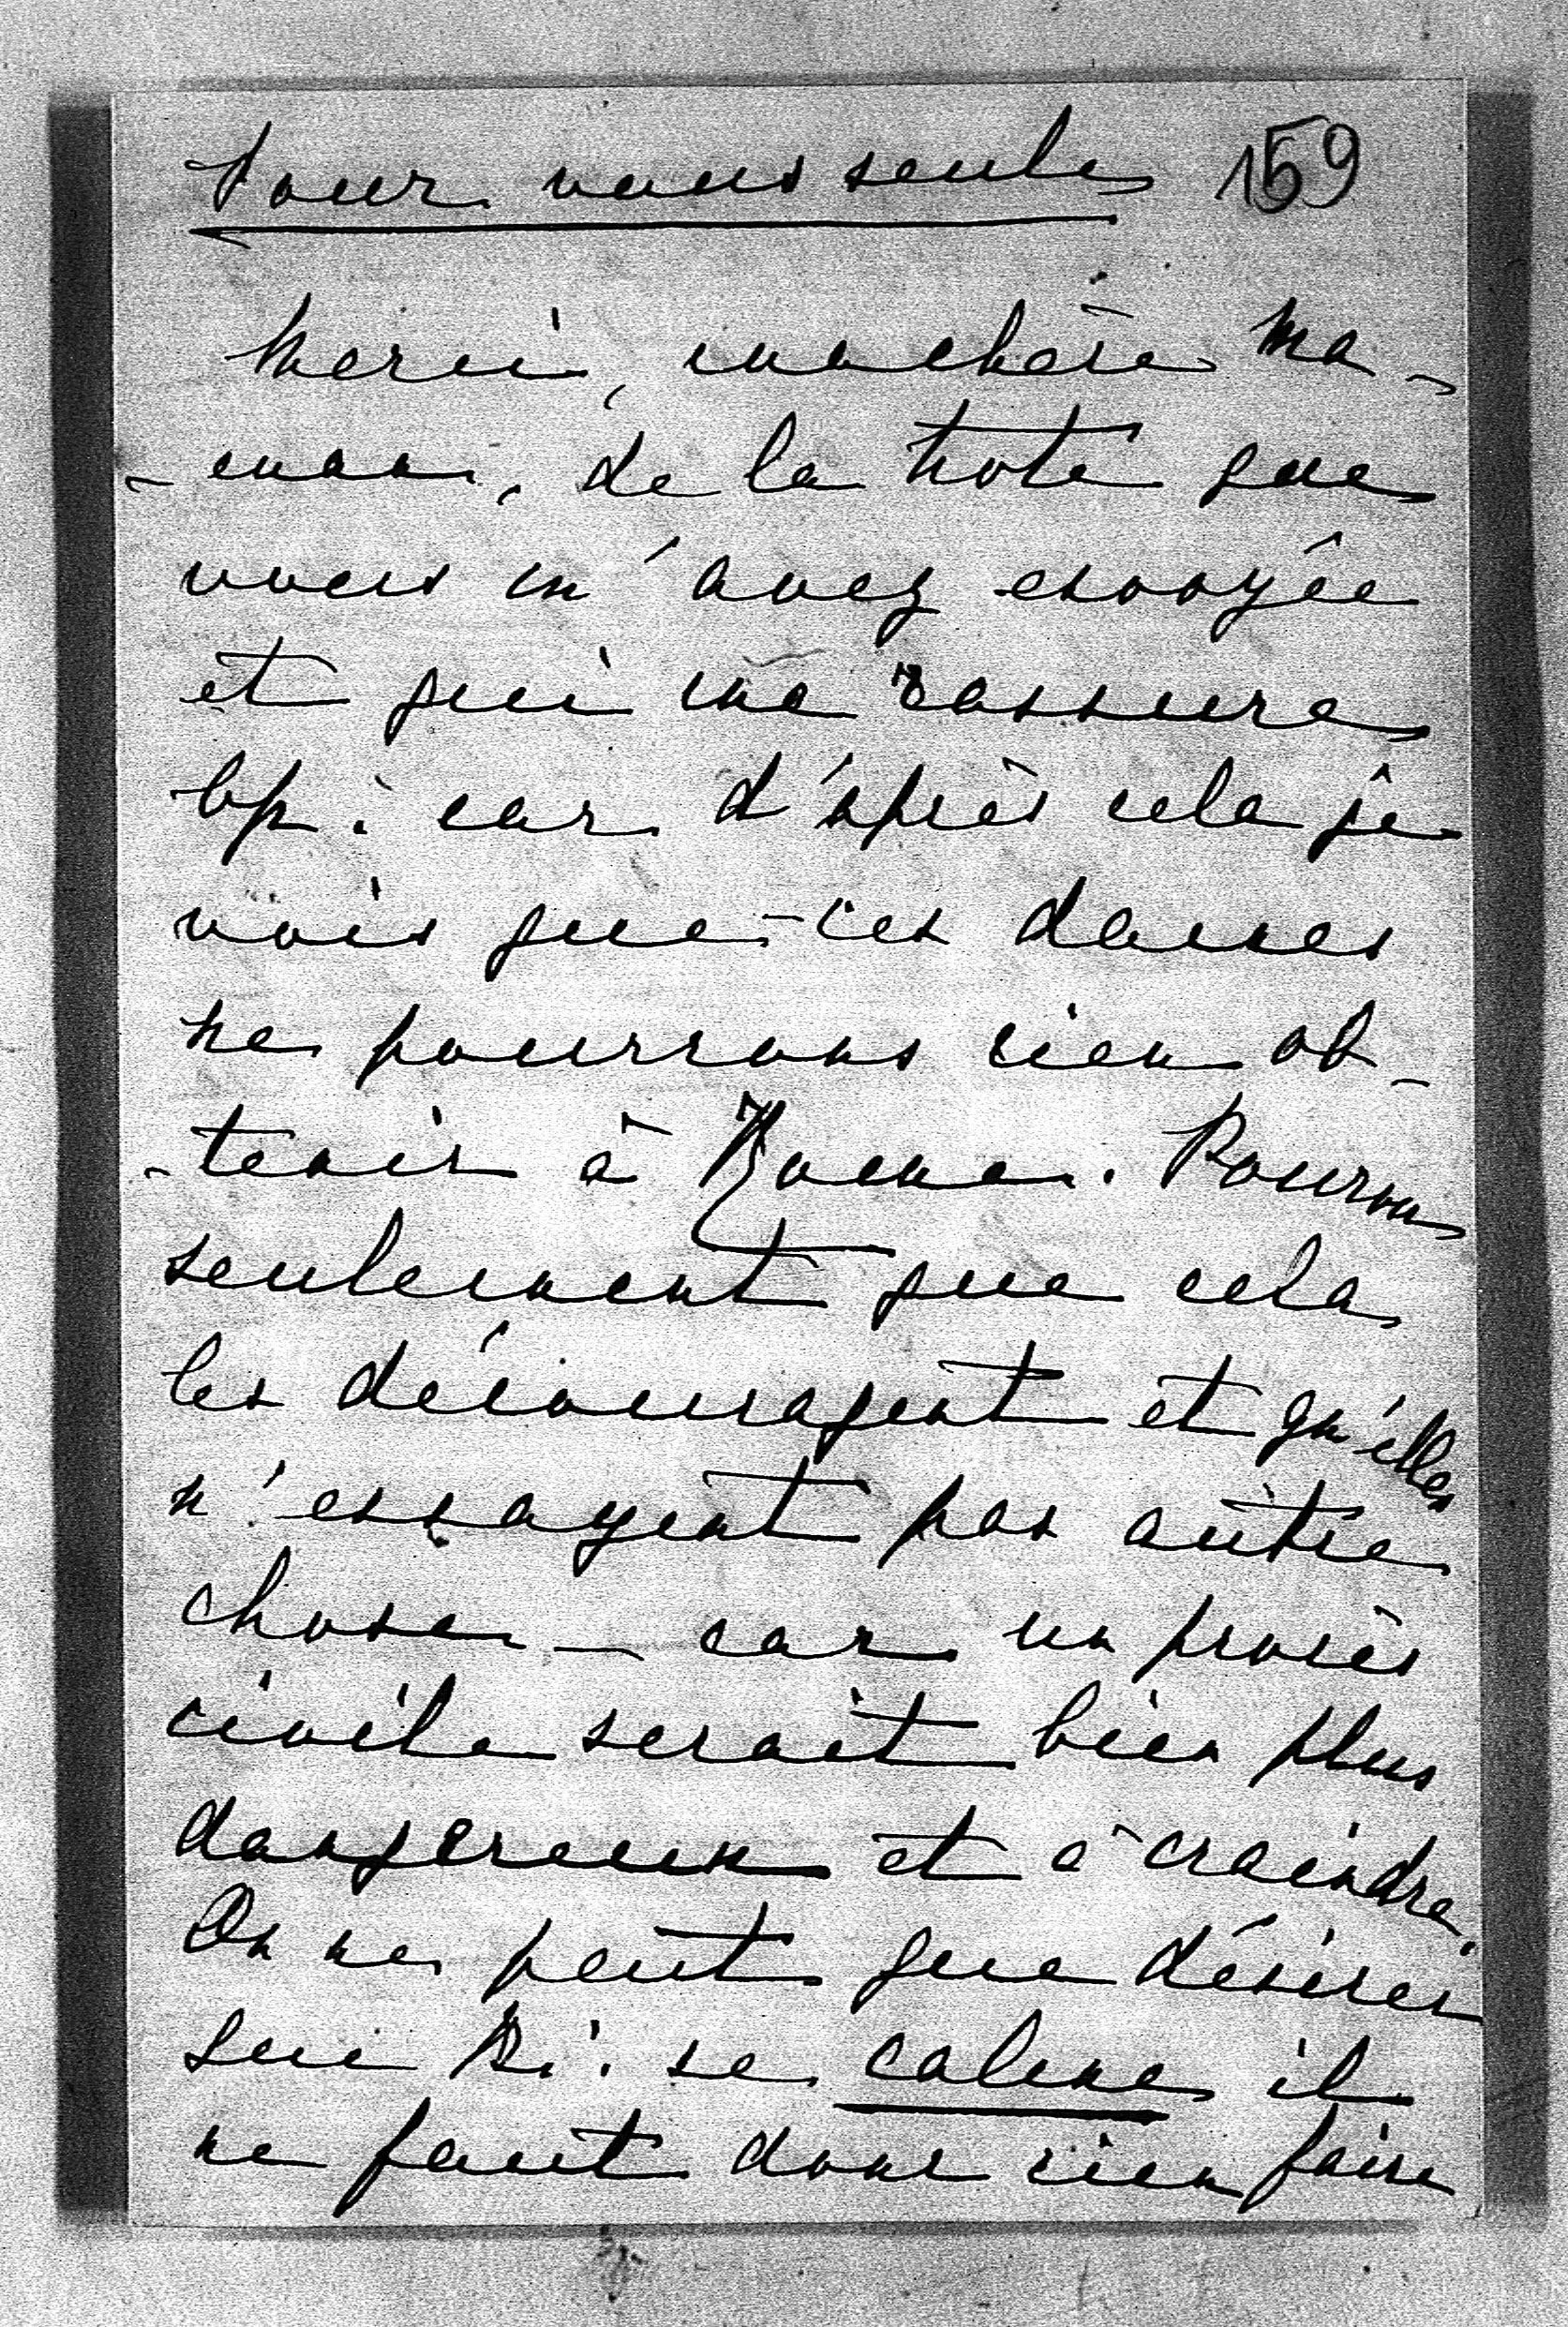 Pour vous seule 159
Merci, ma chère Ma-
-man, de la note que
vous m'avez envoyée
et qui me rassure
bp: car d'après cela je
vois que ces dames
ne pourrons rien ob-
-tenir à Rome. Pourvu
seulement que cela
les découragent et qu'elles
n'essayent pas autre
chose — car un procès
civile serait bien plus
dangereux et à craindre.
On ne peut que désirer
que Bi: se calme il
ne faut donc rien faire